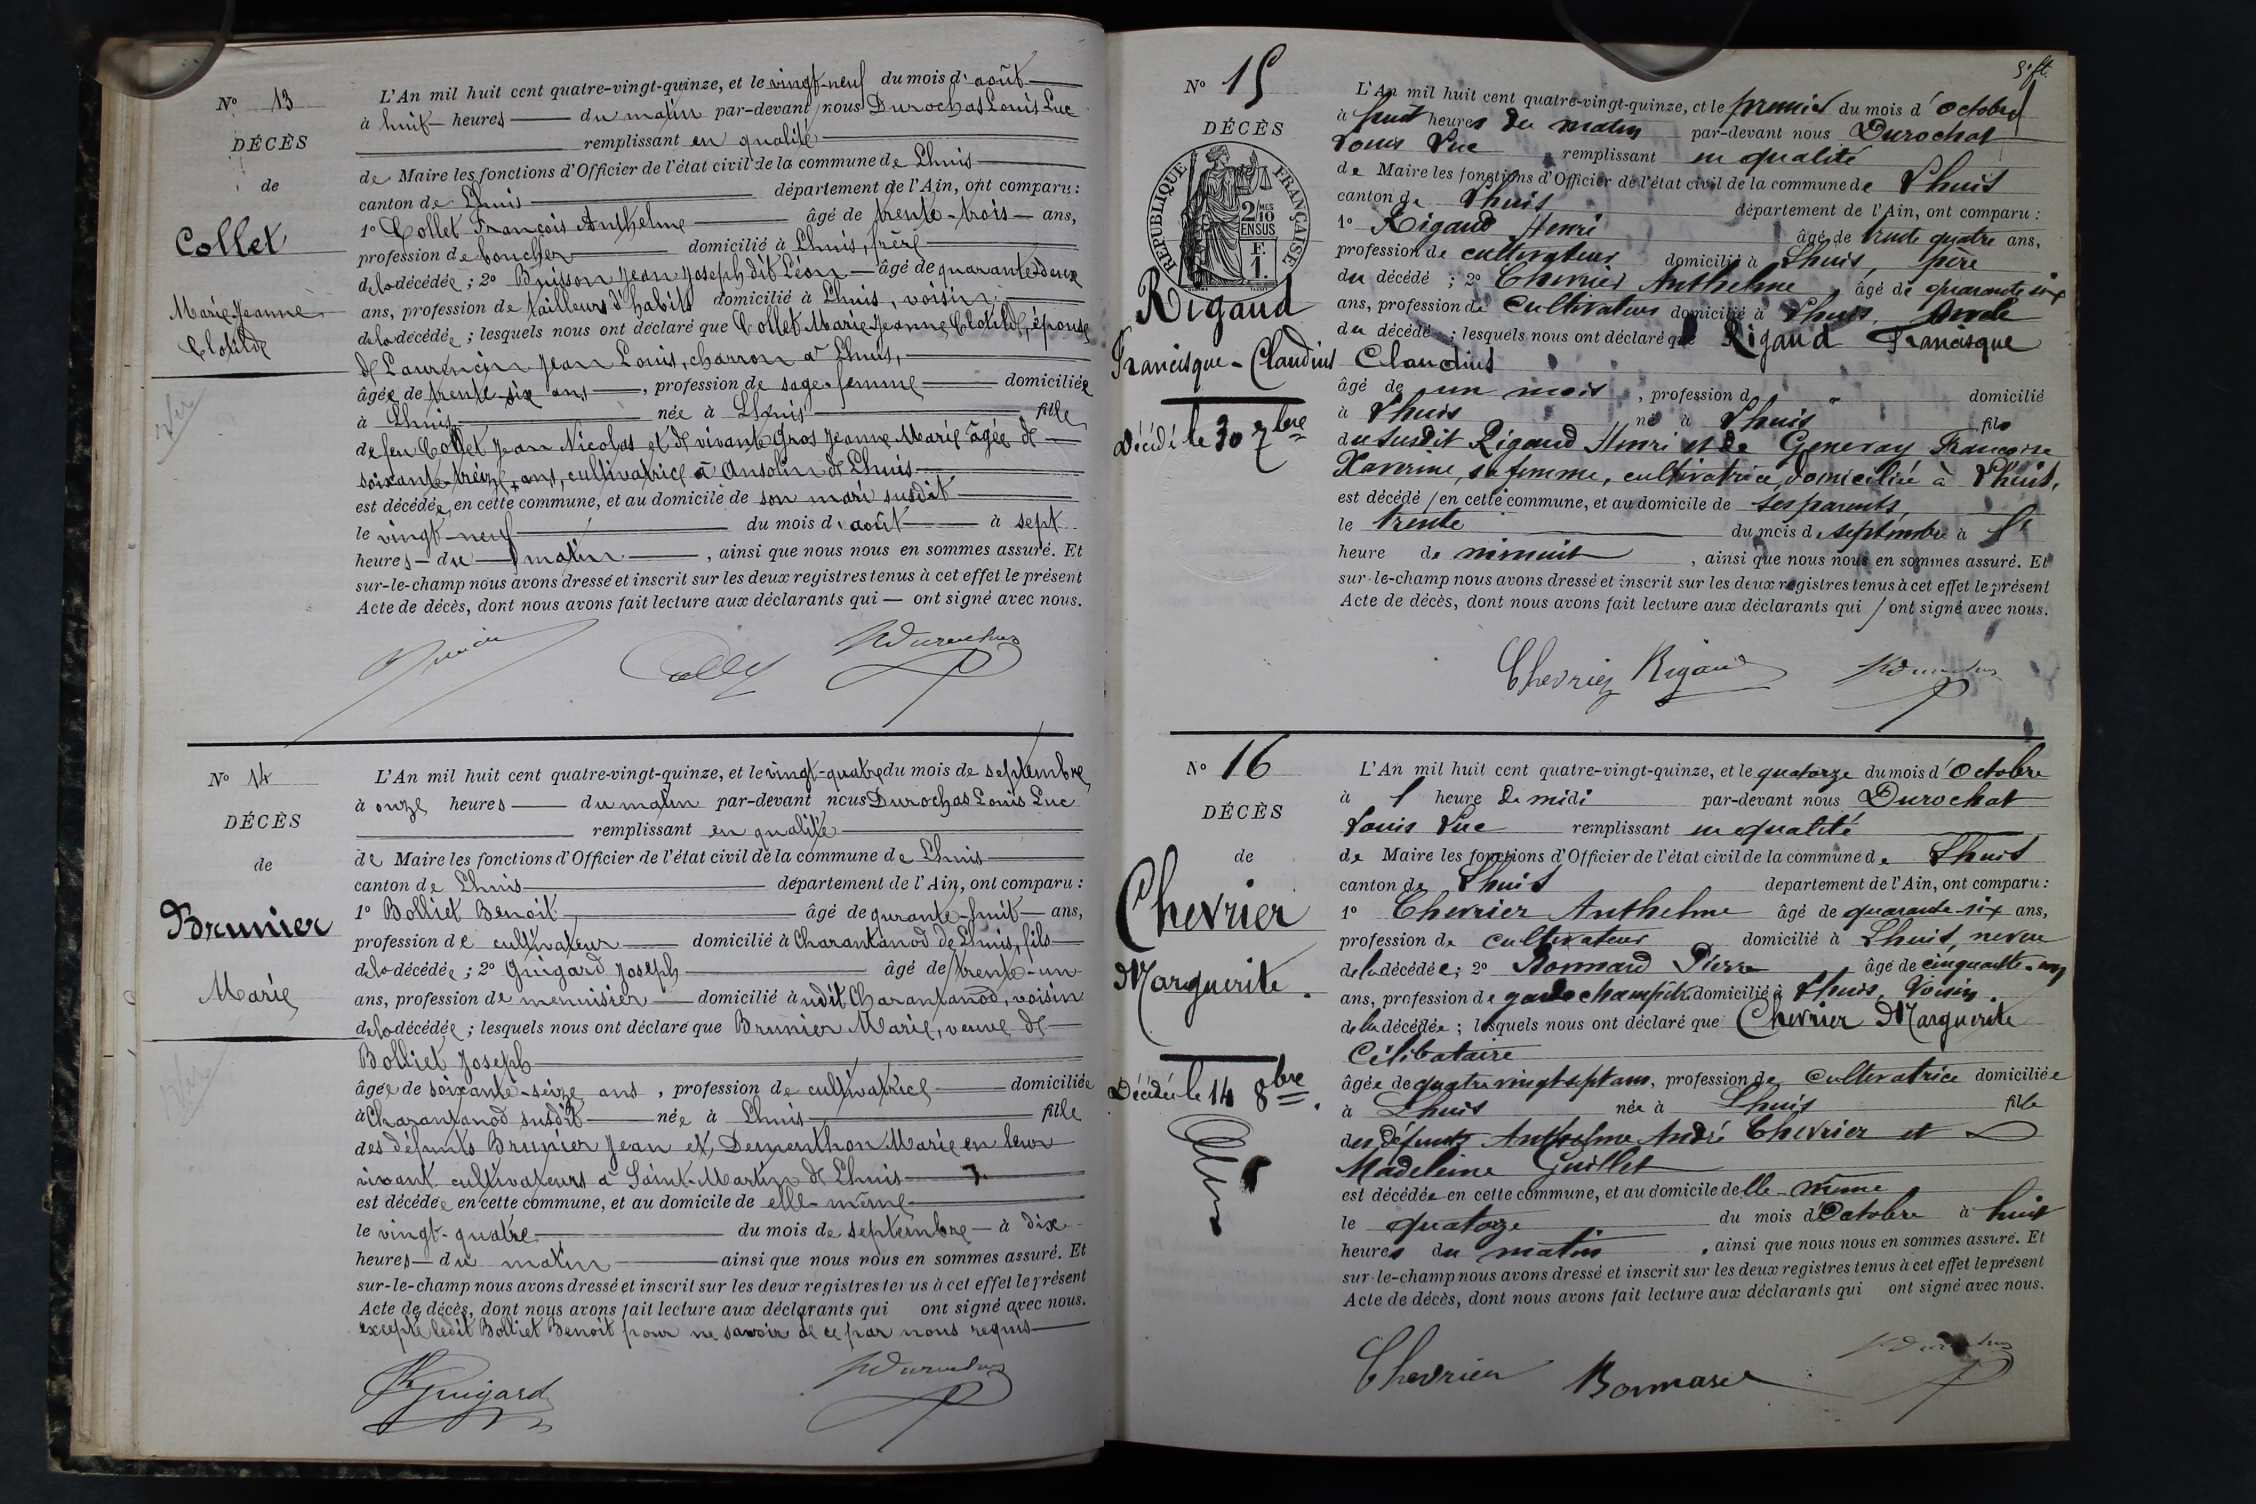 N° 13
DÉCÈS
de
Collet
Marie Jeanne
Clotilde
L'An mil huit cent quatre-vingt-quinze, et le vingt-neuf du mois d'août
à huit heures du matin par-devant nous Durochas Louis Luc
remplissant en qualité
de Maire les fonctions d'Officier de l'état civil de la commune de Lhuis
canton de Lhuis département de l'Ain, ont comparu :
1° Collet François Anthelme âgé de trente-trois ans,
profession de boucher domicilié à Lhuis, frère
de la décédée ; 2° Buisson Jean Joseph dit Léon âgé de quarante-deux
ans, profession de tailleurs d'habits domicilié à Lhuis, voisin
de la décédée ; lesquels nous ont déclaré que Collet Marie Jeanne Clotilde, épouse
de Laurencin Jean Louis, charron à Lhuis,
âgée de trente-six ans, profession de sage-femme domiciliée
à Lhuis née à Lhuis fille
de feu Collet Jean Nicolas et de vivante Gros Jeanne Marie âgée de
soixante-treize ans, cultivatrice à Ansolin de Lhuis
est décédée, en cette commune, et au domicile de son mari susdit
le vingt-neuf du mois d'août à sept
heures du matin, ainsi que nous nous en sommes assuré. Et
sur-le-champ nous avons dressé et inscrit sur les deux registres tenus à cet effet le présent
Acte de décès, dont nous avons fait lecture aux déclarants qui ont signé avec nous.
N° 14
DÉCÈS
de
Brunier
Marie
L'An mil huit cent quatre-vingt-quinze, et le vingt-quatre du mois de septembre
à onze heures du matin par-devant nous Durochas Louis Luc
remplissant en qualité
de Maire les fonctions d'Officier de l'état civil de la commune de Lhuis
canton de Lhuis département de l'Ain, ont comparu :
1° Bolliet Benoit âgé de qurante-huit ans,
profession de cultivateur domicilié à Charantonod de Lhuis, fils
de la décédée ; 2° Guigard Joseph âgé de trente-un
ans, profession de menuisier domicilié à udit Charantonod, voisin
de la décédée ; lesquels nous ont déclaré que Brunier Marie, veuve de
Bolliet Joseph
âgée de soixante-seize ans, profession de cultivatrice domiciliée
à Charantonod susdit née à Lhuis fille
des défunts Brunier Jean et Dementhon Marie en leur
vivant cultivateurs à Saint-Martin de Lhuis
est décédée en cette commune, et au domicile de elle-même
le vingt-quatre du mois de septembre à dix
heures du matin ainsi que nous nous en sommes assuré. Et
sur-le-champ nous avons dressé et inscrit sur les deux registres tenus à cet effet le présent
Acte de décès, dont nous avons fait lecture aux déclarants qui ont signé avec nous.
excepté ledit Bolliet Benoit pour ne savoir de ce par nous requis
Guigard
N° 15
DÉCÈS
REPUBLIQUE FRANÇAISE
2/10 MES EN SUS
F. 1.
Rigaud
Francisque-Claudius
Décédé le 30 7bre
L'An mil huit cent quatre-vingt-quinze, et le premier du mois d'Octobre
à huit heures du matin par-devant nous Durochat
Louis Luc remplissant en qualité
de Maire les fonctions d'Officier de l'état civil de la commune de Lhuis
canton de Lhuis département de l'Ain, ont comparu :
1° Rigaud Henri âgé de trente quatre ans,
profession de cultivateur domicilié à Lhuis, père
du décédé ; 2° Chevrier Anthelme, âgé de quarante six
ans, profession de cultivateur domicilié à Lhuis, oncle
du décédé ; lesquels nous ont déclaré que Rigaud Francisque
Claudius
âgé de un mois, profession d " domicilié
à Lhuis né à Lhuis fils
du susdit Rigaud Henri et de Genevay Françoise
Xaverine, sa femme, cultivatrice, domiciliée à Lhuis,
est décédé / en cette commune, et au domicile de ses parents,
le trente du mois de septembre à l'
heure de minuit, ainsi que nous nous en sommes assuré. Et
sur-le-champ nous avons dressé et inscrit sur les deux registres tenus à cet effet le présent
Acte de décès, dont nous avons fait lecture aux déclarants qui / ont signé avec nous.
Chevrier Rigaud
N° 16
DÉCÈS
de
Chevrier
Marguerite.
Décédée le 14 8bre.
L'An mil huit cent quatre-vingt-quinze, et le quatorze du mois d'Octobre
à l heure de midi par-devant nous Durochat
Louis Luc remplissant en qualité
de Maire les fonctions d'Officier de l'état civil de la commune de Lhuis
canton de Lhuis departement de l'Ain, ont comparu :
1° Chevrier Anthelme âgé de quarante-six ans,
profession de cultivateur domicilié à Lhuis, neveu
de la décédée ; 2° Bonnard Pierre âgé de cinquante-
ans, profession de garde champêtre domicilié à Lhuis, Voisin.
de la décédée ; lesquels nous ont déclaré que Chevrier Marguerite
Célibataire
âgée de quatre vingt sept ans, profession de cultivatrice domiciliée
à Lhuis née à Lhuis fille
des défunts Anthelme André Chevrier et
Madeleine Guillet
est décédée en cette commune, et au domicile delle-même
le quatorze du mois d'Octobre à huit
heures du matin, ainsi que nous nous en sommes assuré. Et
sur-le-champ nous avons dressé et inscrit sur les deux registres tenus à cet effet le présent
Acte de décès, dont nous avons fait lecture aux déclarants qui ont signé avec nous.
Chevrier Bonnard